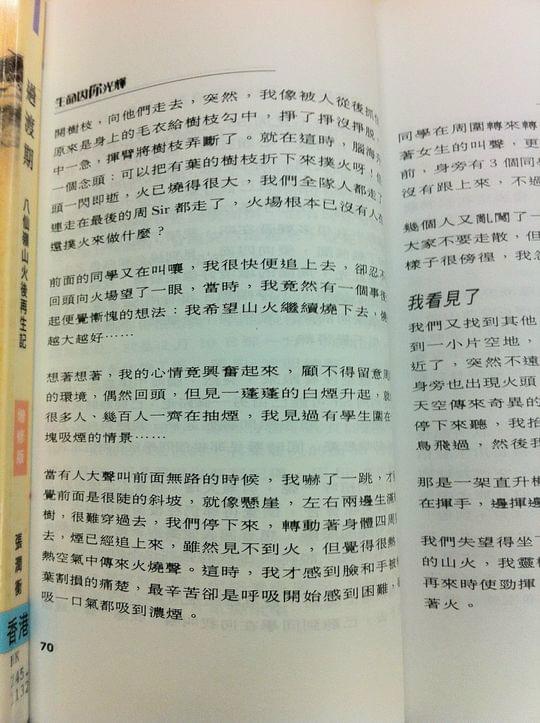 過渡期
八仙嶺山火後再生記
增修版
張潤衡
香港
生命因你光輝
開樹枝，向他們走去，突然，我像被人從後抓住
原來是身上的毛衣給樹枝勾中，掙了掙沒掙脫，
中一急，揮臂將樹枝弄斷了。就在這時，腦海
一個念頭：可以把有葉的樹枝折下來撲火呀！
頭一閃即逝，火已燒得很大，我們全隊人都走了
連走在最後的周Sir都走了，火場根本已沒有人在
還撲火來做什麼？
前面的同學又在叫嚷，我很快便追上去，卻忍不
回頭向火場望了一眼，當時，我竟然有一個事後
起便覺慚愧的想法：我希望山火繼續燒下去，燒
越大越好……
想著想著，我的心情竟興奮起來，顧不得留意周
的環境，偶然回頭，但見一蓬蓬的白煙升起，就
很多人、幾百人一齊在抽煙，我見過有學生圍在
塊吸煙的情景……
當有人大聲叫前面無路的時候，我嚇了一跳，才
覺前面是很陡的斜坡，就像懸崖，左右兩邊生滿
樹，很難穿過去，我們停下來，轉動著身體四周
去，煙已經追上來，雖然見不到火，但覺得很熱
熱空氣中傳來火燒聲。這時，我才感到臉和手被
葉割損的痛楚，最辛苦卻是呼吸開始感到困難，
吸一口氣都吸到濃煙。
70
同學在周圍轉來轉
著女生的叫聲，更
前，身旁有3個同
沒有跟上來，不過
幾個人又亂闖了一
大家不要走散，但
樣子很徬徨，我忽
我看見了
我們又找到其他
到一小片空地，
近了，突然不遠
身旁也出現火頭
天空傳來奇異的
停下來聽，我抬
鳥飛過，然後我
那是一架直升機
在揮手，邊揮邊
我們失望得坐下
的山火，我靈機
再來時使勁揮
著火。